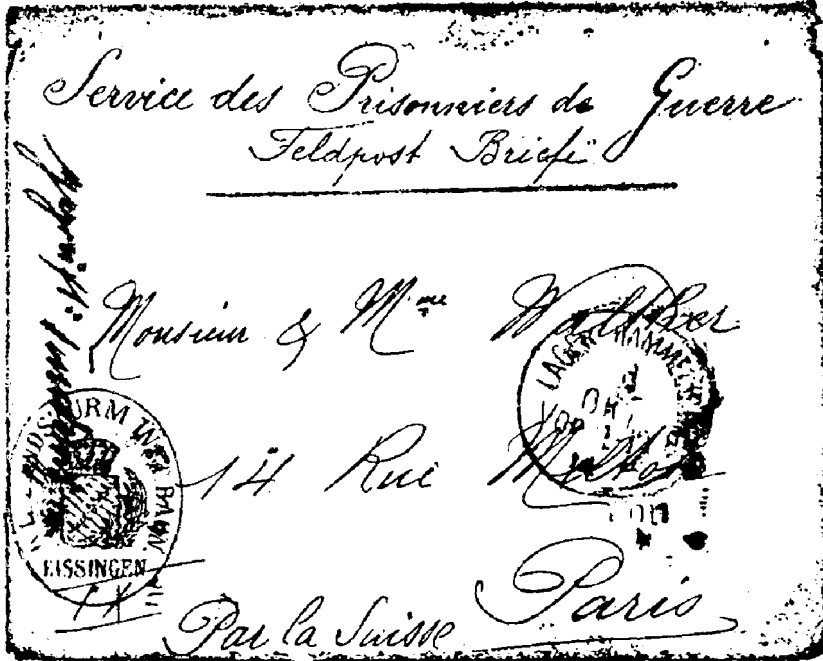 Service des Prisonniers de Guerre
Feldpost Briefe
Monsieur & Mme Walther
LAGER HAMMELBURG
14 Rue Milton
LANDSTURM INF. BATN
KISSINGEN
Par la Suisse
Paris